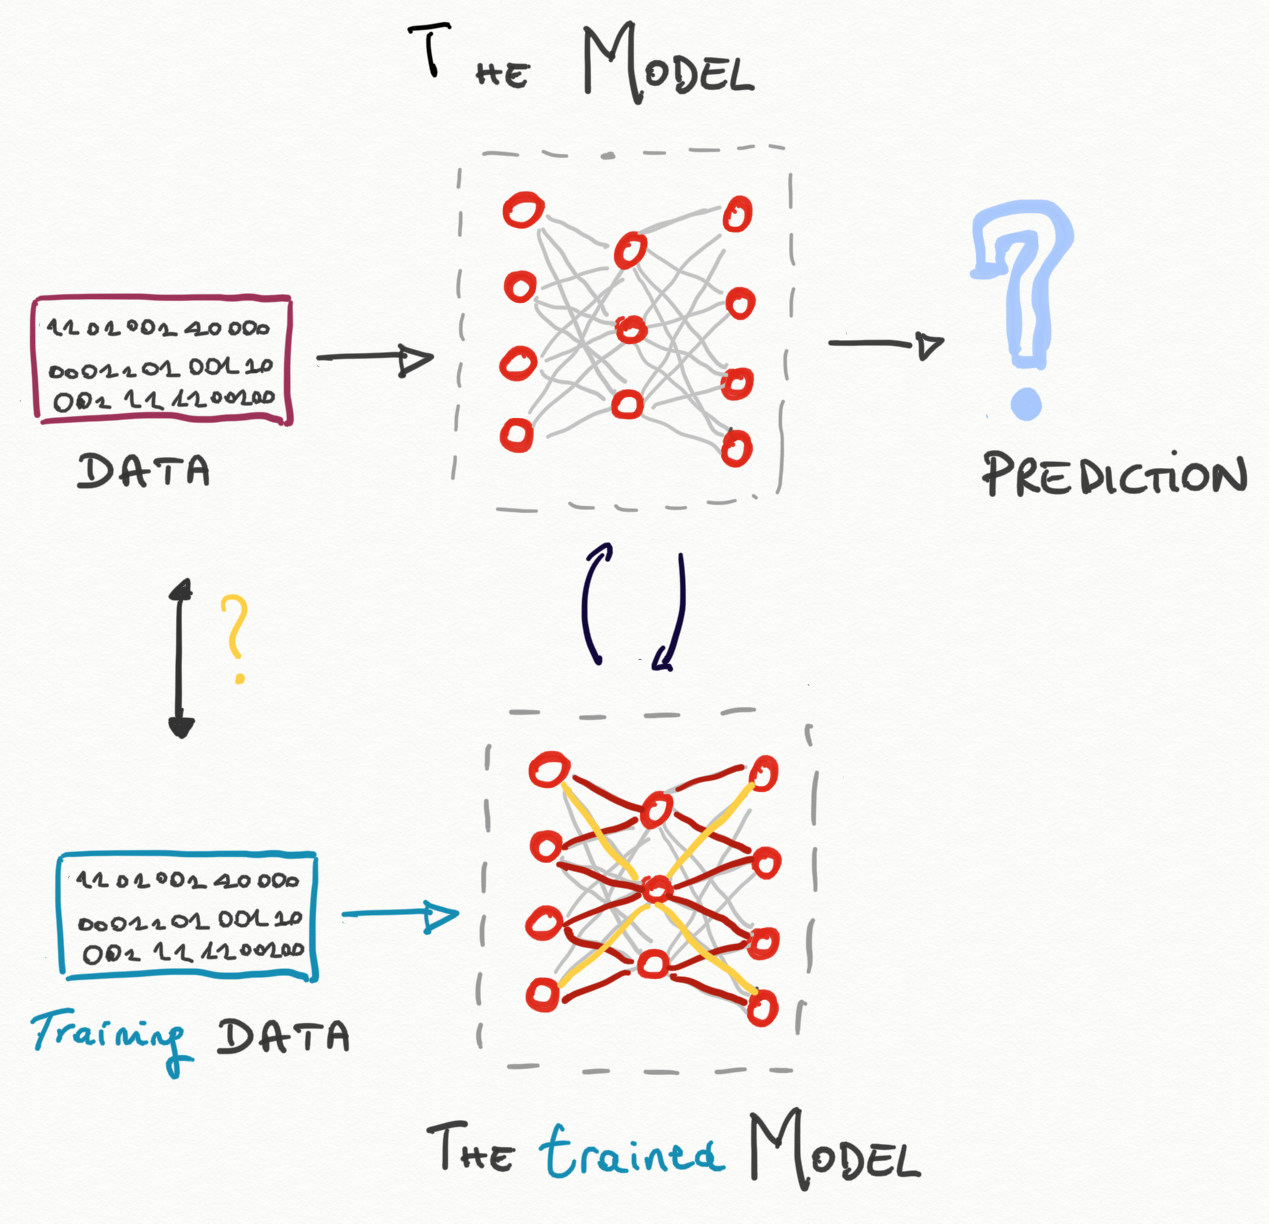 THE MODEL
?
1101001 10 000
0001101 00110
001 11 1100100
DATA
PREDICTION
?
1101001 10 000
0001101 00110
001 11 1100100
Training DATA
THE trained MODEL